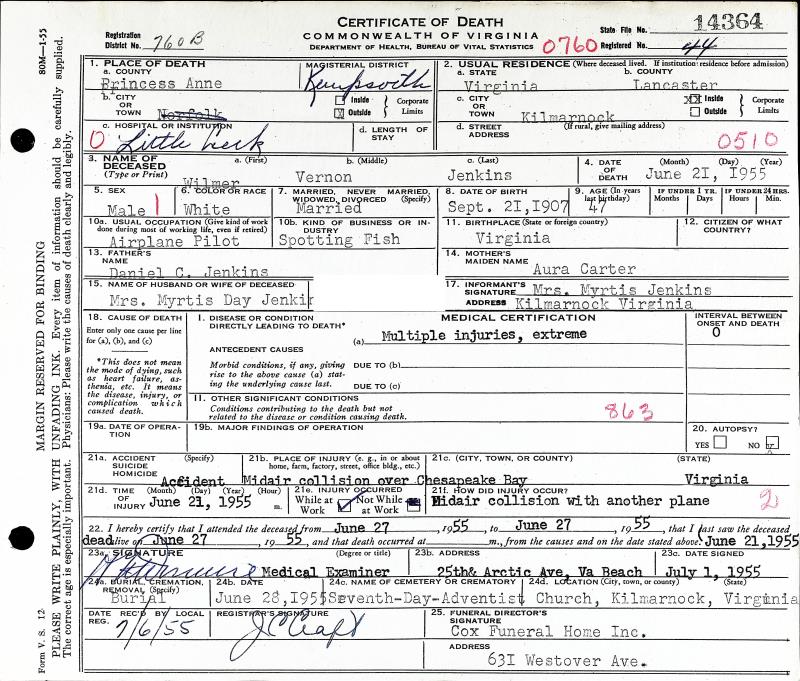 CERTIFICATE OF DEATH
COMMONWEALTH OF VIRGINIA
DEPARTMENT OF HEALTH, BUREAU OF VITAL STATISTICS
Registration District No. 760B
State File No. 14364
0760 Registered No. 44
80M—1-55
MARGIN RESERVED FOR BINDING
PLEASE WRITE PLAINLY, WITH UNFADING INK. Every item of information should be carefully supplied.
The correct age is especially important. Physicians: Please write the causes of death clearly and legibly.
Form V. S. 12
1. PLACE OF DEATH
a. COUNTY
Princess Anne
MAGISTERIAL DISTRICT
Kempsville
b. CITY OR TOWN Norfolk
Inside
Outside
Corporate Limits
c. HOSPITAL OR INSTITUTION
0 Little Creek
d. LENGTH OF STAY
2. USUAL RESIDENCE (Where deceased lived. If institution: residence before admission)
a. STATE Virginia
b. COUNTY Lancaster
c. CITY OR TOWN Kilmarnock
XX Inside
Outside
Corporate Limits
d. STREET ADDRESS (If rural, give mailing address)
0510
3. NAME OF DECEASED (Type or Print)
a. (First) Wilmer
b. (Middle) Vernon
c. (Last) Jenkins
4. DATE OF DEATH (Month) (Day) (Year)
June 21, 1955
5. SEX
Male 1
6. COLOR OR RACE
White
7. MARRIED, NEVER MARRIED, WIDOWED, DIVORCED (Specify)
Married
8. DATE OF BIRTH
Sept. 21,1907
9. AGE (In years last birthday)
47
IF UNDER 1 YR.
Months Days
IF UNDER 24 HRS.
Hours Min.
10a. USUAL OCCUPATION (Give kind of work done during most of working life, even if retired)
Airplane Pilot
10b. KIND OF BUSINESS OR INDUSTRY
Spotting Fish
11. BIRTHPLACE (State or foreign country)
Virginia
12. CITIZEN OF WHAT COUNTRY?
13. FATHER'S NAME
Daniel C. Jenkins
14. MOTHER'S MAIDEN NAME
Aura Carter
15. NAME OF HUSBAND OR WIFE OF DECEASED
Mrs. Myrtis Day Jenki
17. INFORMANT'S SIGNATURE Mrs. Myrtis Jenkins
ADDRESS Kilmarnock Virginia
18. CAUSE OF DEATH
Enter only one cause per line for (a), (b), and (c)
*This does not mean the mode of dying, such as heart failure, asthenia, etc. It means the disease, injury, or complication which caused death.
MEDICAL CERTIFICATION
I. DISEASE OR CONDITION DIRECTLY LEADING TO DEATH*
(a) Multiple injuries, extreme
INTERVAL BETWEEN ONSET AND DEATH
0
ANTECEDENT CAUSES
Morbid conditions, if any, giving rise to the above cause (a) stating the underlying cause last.
DUE TO (b)
DUE TO (c)
II. OTHER SIGNIFICANT CONDITIONS
Conditions contributing to the death but not related to the disease or condition causing death.
863
19a. DATE OF OPERATION
19b. MAJOR FINDINGS OF OPERATION
20. AUTOPSY?
YES NO
21a. ACCIDENT SUICIDE HOMICIDE (Specify)
Accident
21b. PLACE OF INJURY (e. g., in or about home, farm, factory, street, office bldg., etc.)
21c. (CITY, TOWN, OR COUNTY) (STATE)
Midair collision over Chesapeake Bay Virginia
21d. TIME OF INJURY (Month) (Day) (Year) (Hour)
June 21, 1955 m.
21e. INJURY OCCURRED
While at Work
Not While at Work
21f. HOW DID INJURY OCCUR?
Midair collision with another plane
2
22. I hereby certify that I attended the deceased from June 27 1955 to June 27 1955, that I last saw the deceased
dead alive on June 27 1955, and that death occurred at m., from the causes and on the date stated above. June 21,1955
23a. SIGNATURE (Degree or title)
Medical Examiner
23b. ADDRESS
25th& Arctic Ave, Va Beach
23c. DATE SIGNED
July 1, 1955
24a. BURIAL, CREMATION, REMOVAL (Specify)
Burial
24b. DATE
June 28,1955
24c. NAME OF CEMETERY OR CREMATORY
24d. LOCATION (City, town, or county) (State)
Seventh-Day-Adventist Church, Kilmarnock, Virginia
DATE REC'D BY LOCAL REG.
7/6/55
REGISTRAR'S SIGNATURE
J C Craft
25. FUNERAL DIRECTOR'S SIGNATURE
Cox Funeral Home Inc.
ADDRESS
631 Westover Ave.